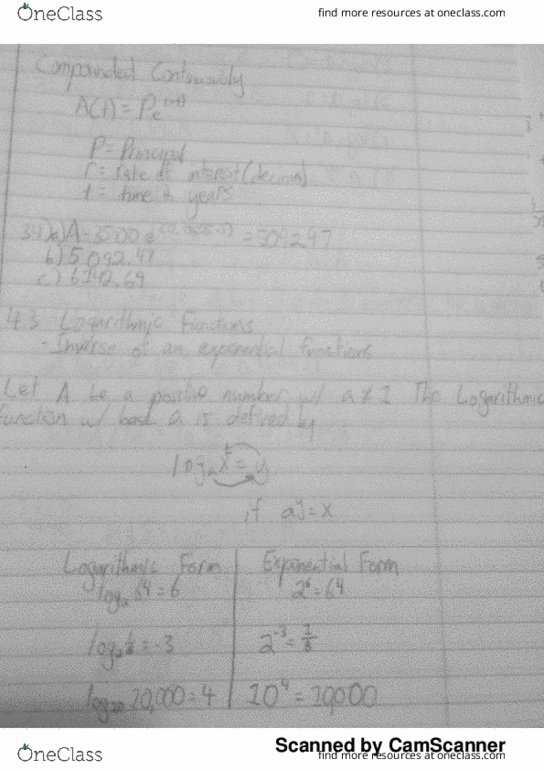 OneClass
find more resources at oneclass.com
Compounded Continuously
A(t) = Pe^(rt)
P = Principal
r = rate of interest (decimal)
t = time in years
b) 5092.47
c) 6142.69
4.3 Logarithmic Functions
- Inverse of an exponential functions
Let A be a positive number w/ a ≠ 1 The Logarithmic
function w/ base a is defined by
log_a x = y
if a^y = x
Logarithmic Form | Exponential Form
log_2 64 = 6 | 2^6 = 64
log_2 1/8 = -3 | 2^-3 = 1/8
log_10 10,000 = 4 | 10^4 = 10000
Scanned by CamScanner
OneClass
find more resources at oneclass.com